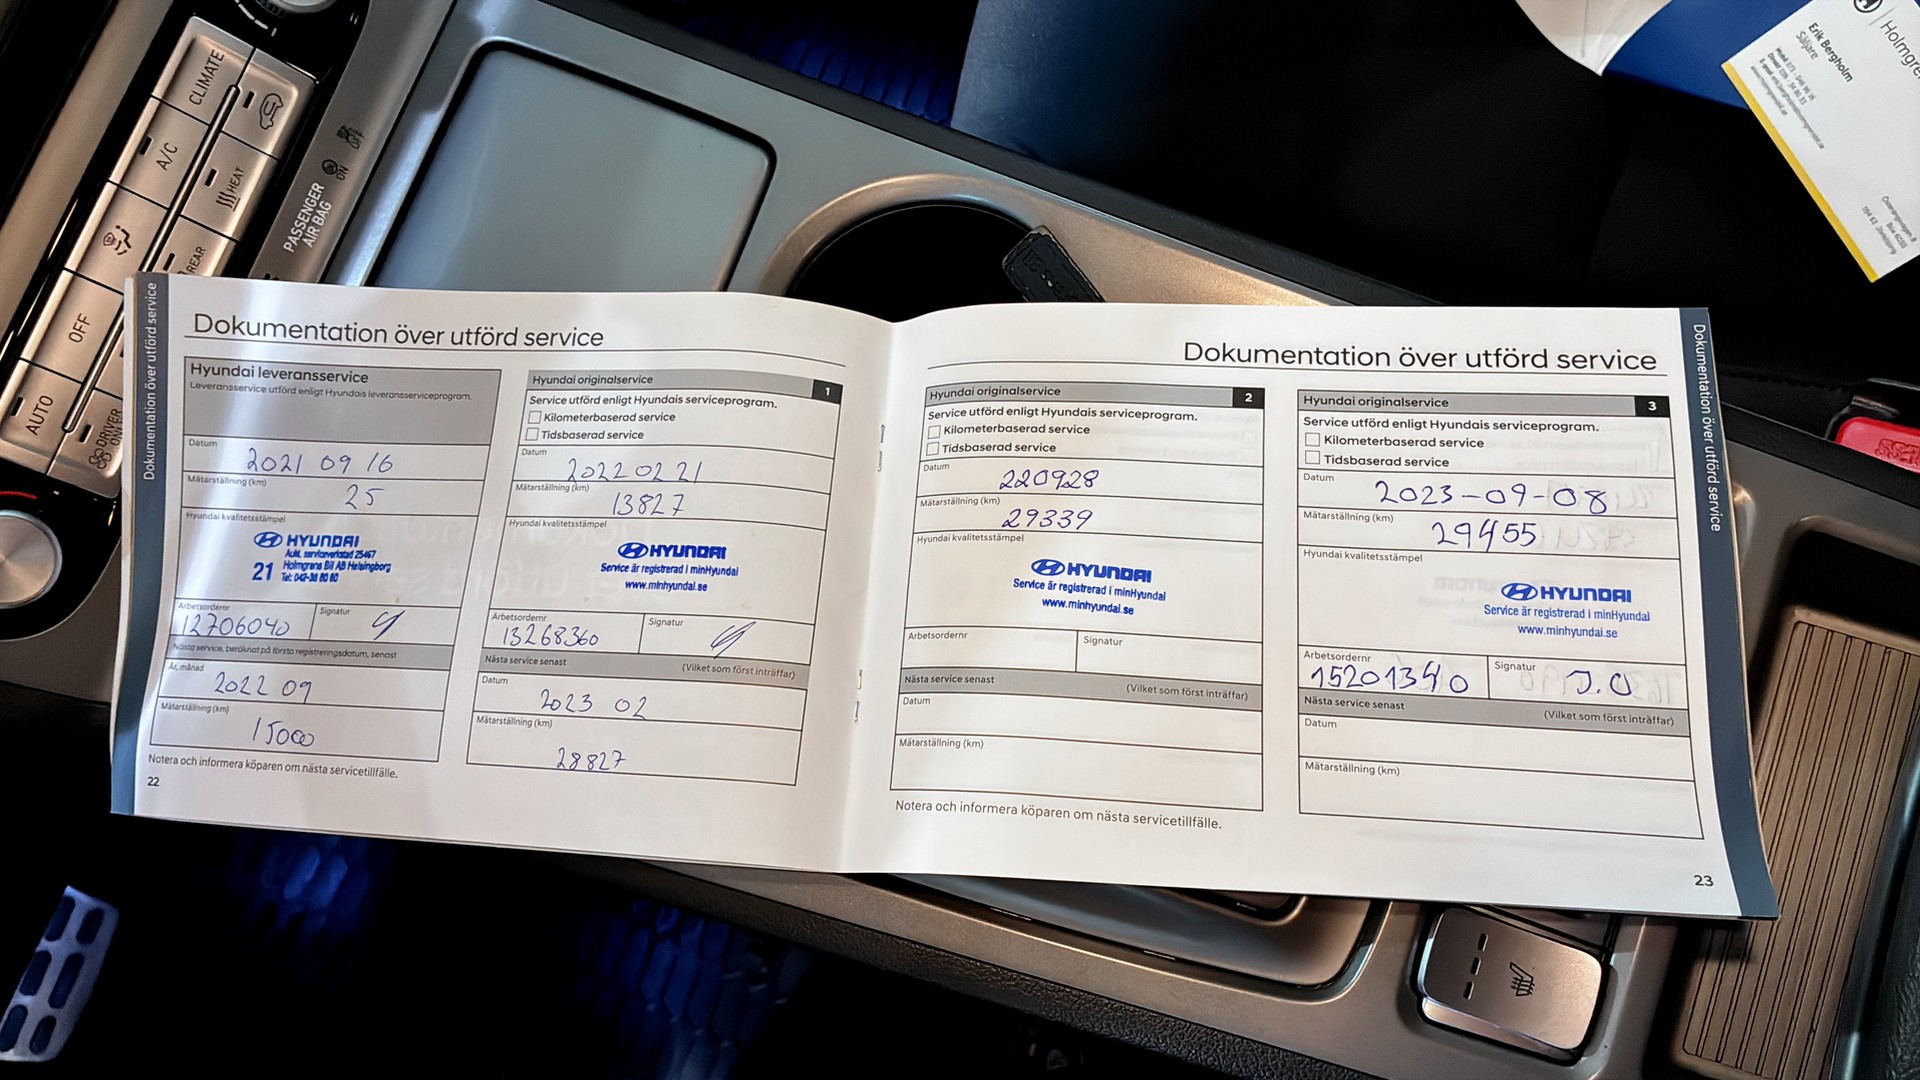 CLIMATE
A/C
HEAT
REAR
OFF
AUTO
DRIVER
ONLY
PASSENGER
AIR BAG
OFF
ON
Holmgre
Erik Bergholm
Säljare
Dokumentation över utförd service
Dokumentation över utförd service
Hyundai leveransservice
Leveransservice utförd enligt Hyundais leveransserviceprogram.
Datum
2021 09 16
Mätarställning (km)
25
Hyundai kvalitetsstämpel
HYUNDAI
Aukt. serviceverkstad 25467
Holmgrens Bil AB Helsingborg
21 Tel: 042-38 80 80
Arbetsordernr
12706040
Signatur
Nästa service, beräknat på första registreringsdatum, senast
År, månad
2022 09
Mätarställning (km)
15000
Notera och informera köparen om nästa servicetillfälle.
22
Hyundai originalservice 1
Service utförd enligt Hyundais serviceprogram.
Kilometerbaserad service
Tidsbaserad service
Datum
2022 02 21
Mätarställning (km)
13827
Hyundai kvalitetsstämpel
HYUNDAI
Service är registrerad i minHyundai
www.minhyundai.se
Arbetsordernr
13268360
Signatur
Nästa service senast (Vilket som först inträffar)
Datum
2023 02
Mätarställning (km)
28827
Dokumentation över utförd service
Hyundai originalservice 2
Service utförd enligt Hyundais serviceprogram.
Kilometerbaserad service
Tidsbaserad service
Datum
220928
Mätarställning (km)
29339
Hyundai kvalitetsstämpel
HYUNDAI
Service är registrerad i minHyundai
www.minhyundai.se
Arbetsordernr
Signatur
Nästa service senast (Vilket som först inträffar)
Datum
Mätarställning (km)
Notera och informera köparen om nästa servicetillfälle.
Hyundai originalservice 3
Service utförd enligt Hyundais serviceprogram.
Kilometerbaserad service
Tidsbaserad service
Datum
2023-09-08
Mätarställning (km)
29455
Hyundai kvalitetsstämpel
HYUNDAI
Service är registrerad i minHyundai
www.minhyundai.se
Arbetsordernr
15201340
Signatur
J.O
Nästa service senast (Vilket som först inträffar)
Datum
Mätarställning (km)
23
Dokumentation över utförd service